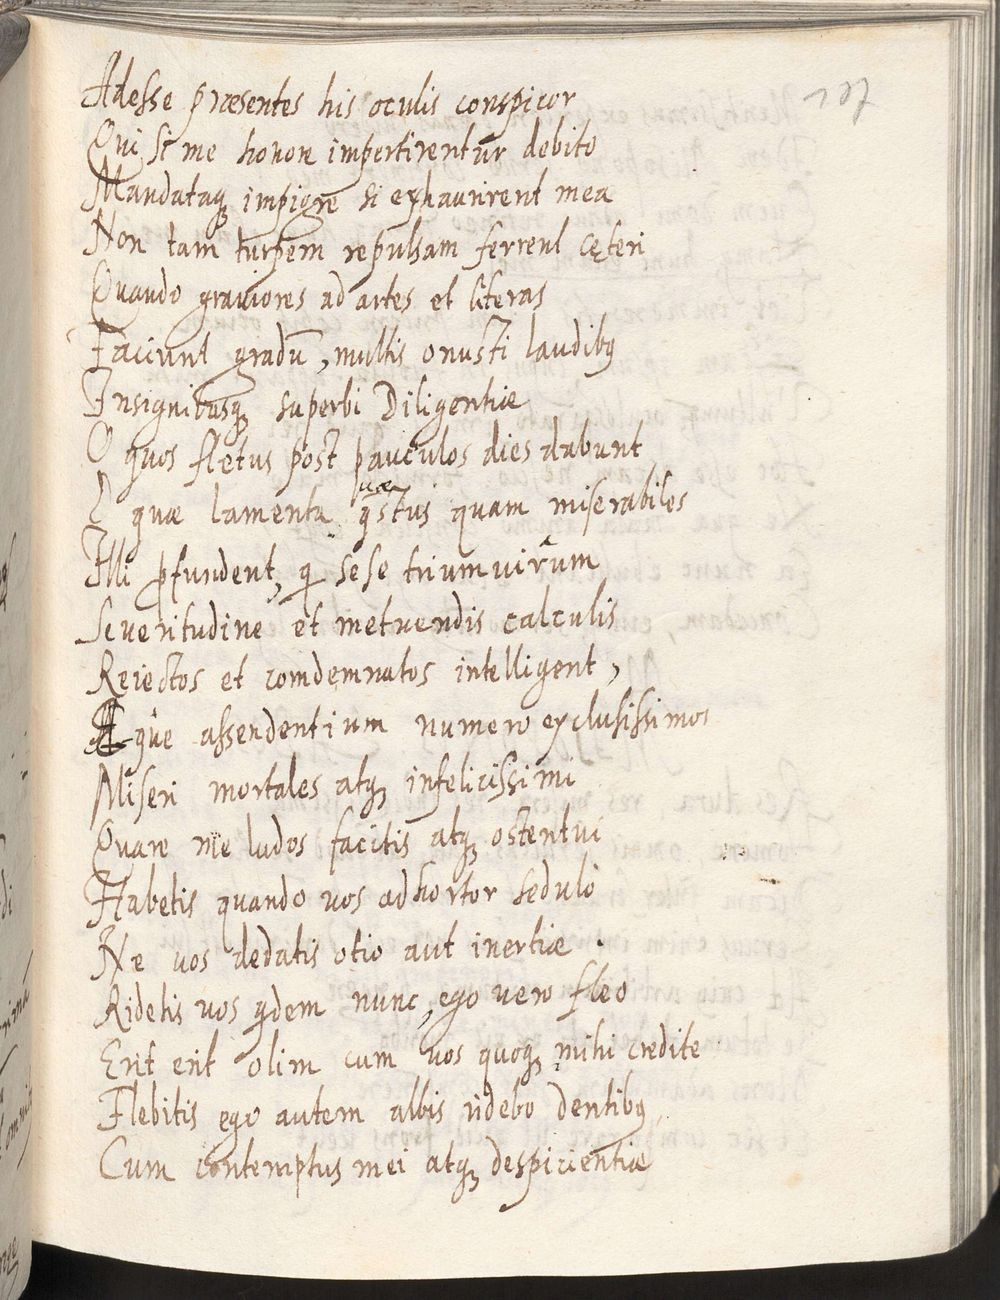 187
Adesse præsentes his oculis conspicor
Qui si me honore impertirentur debito
Mandataq; impigre si exhaurirent mea
Non tam turpem repulsam ferrent cęteri
Quando grauiores ad artes et literas
Faciunt gradū, multis onusti laudibꝰ
Insignibusq; superbi Diligentiæ
O quos fletus post pauculos dies dabunt
O quæ lamenta quæstus quam miserabiles
Illi ꝓfundent, qi sese triumuirûm
Seueritudine et metuendis calculis
Reiectos et comdemnatos intelligent,
que assendentium numero exclusissimos
Miseri mortales atq; infelicissimi
Quare me ludos facitis atq; ostentui
Habetis quando uos adhortor sedulo
Ne uos dedatis otio aut inertiæ.
Ridetis uos qdem nunc, ego vero fleo
Erit erit olim cum uos quoq; mihi credite
Flebitis ego autem albis ridebo dentibꝰ,
Cum contemptus mei atq; despicientiæ